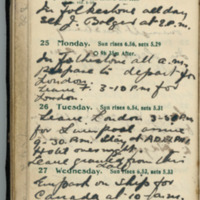 In Folkestone all day
See J. Bolger at 2 P.m.
25 Monday. Sun rises 6.56, sets 5.29
9h 15m After.
In Folkestone all a.m.
Prepare to depart for
London.
Leave F. 3-10 P.m for
London.
26 Tuesday. Sun rises 6.54, sets 5.31
Leave London
for Liverpool arrive
9.30 P.m. Stay at
Hotel overnight.
Leave granted from this
27 Wednesday. Sun rises 6.52, sets 5.33
Embark on ship for
Canada at 10 a.m.